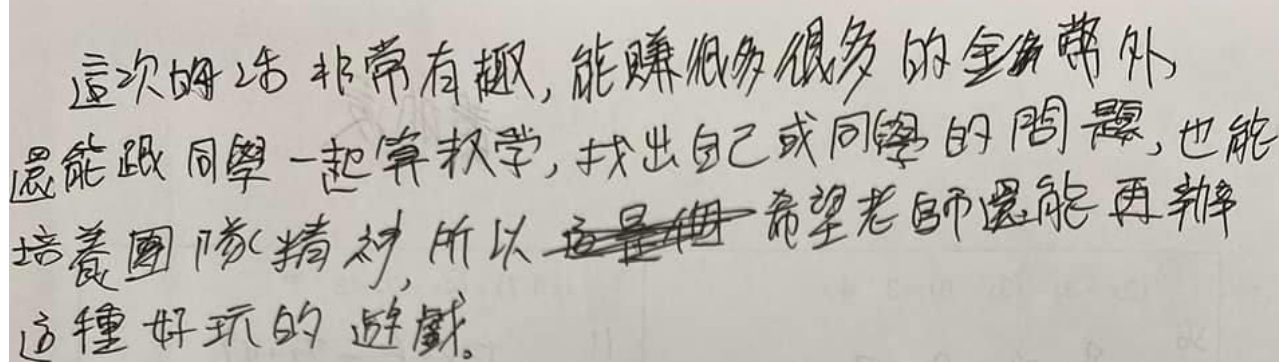 這次的活非常有趣,能賺很多很多的金幣外,
還能跟同學一起算数学,找出自己或同學的問題,也能
培養團隊精神,所以希望老師還能再辦
这種好玩的遊戲。